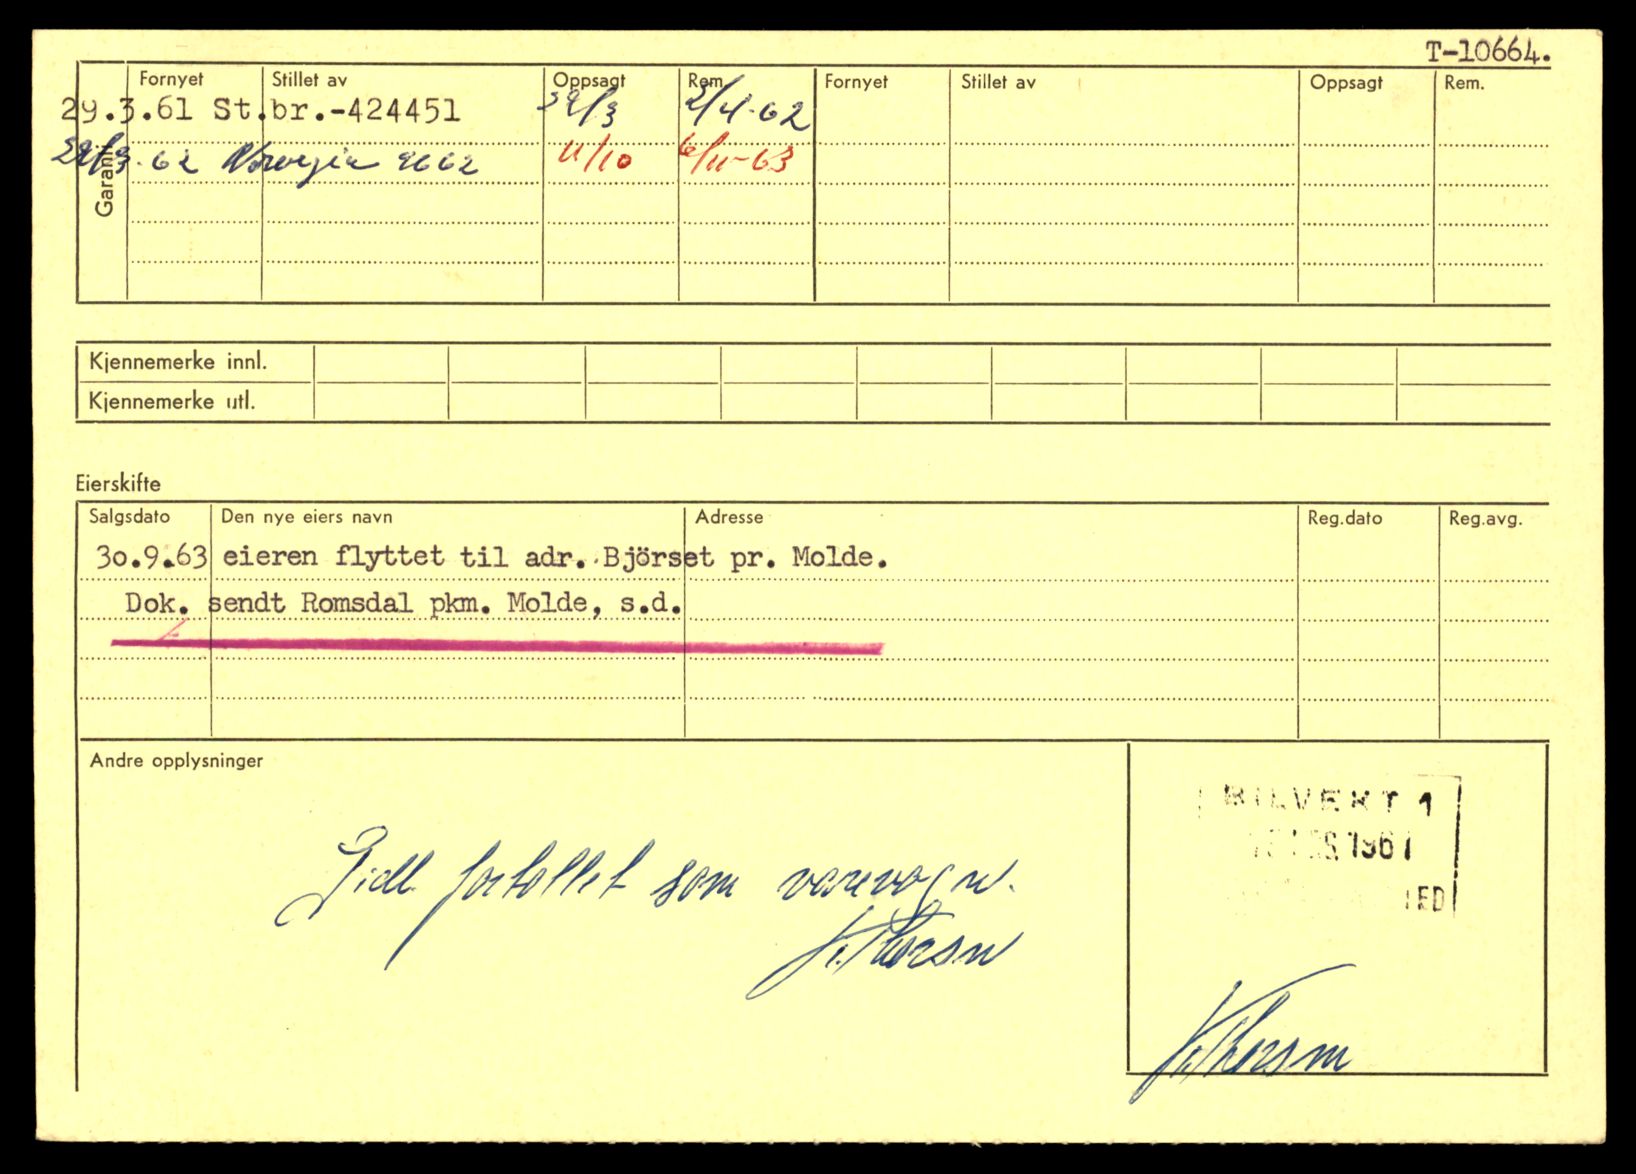 T-10664.
Fornyet Stillet av Oppsagt Rem. Fornyet Stillet av Oppsagt Rem.
29.3.61 St.br.-424451 29/3 2/4-62
29/3-62 Norvegia 9662 11/10 6/11-63
Garanti
Kjennemerke innl.
Kjennemerke utl.
Eierskifte
Salgsdato Den nye eiers navn Adresse Reg.dato Reg.avg.
30.9.63 eieren flyttet til adr. Björset pr. Molde.
Dok. sendt Romsdal pkm. Molde, s.d.
Andre opplysninger
BILVERT 1
1961
fortollet som varevogn.